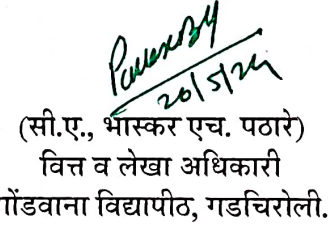 20/5/24
(सी.ए., भास्कर एच. पठारे)
वित्त व लेखा अधिकारी
गोंडवाना विद्यापीठ, गडचिरोली.